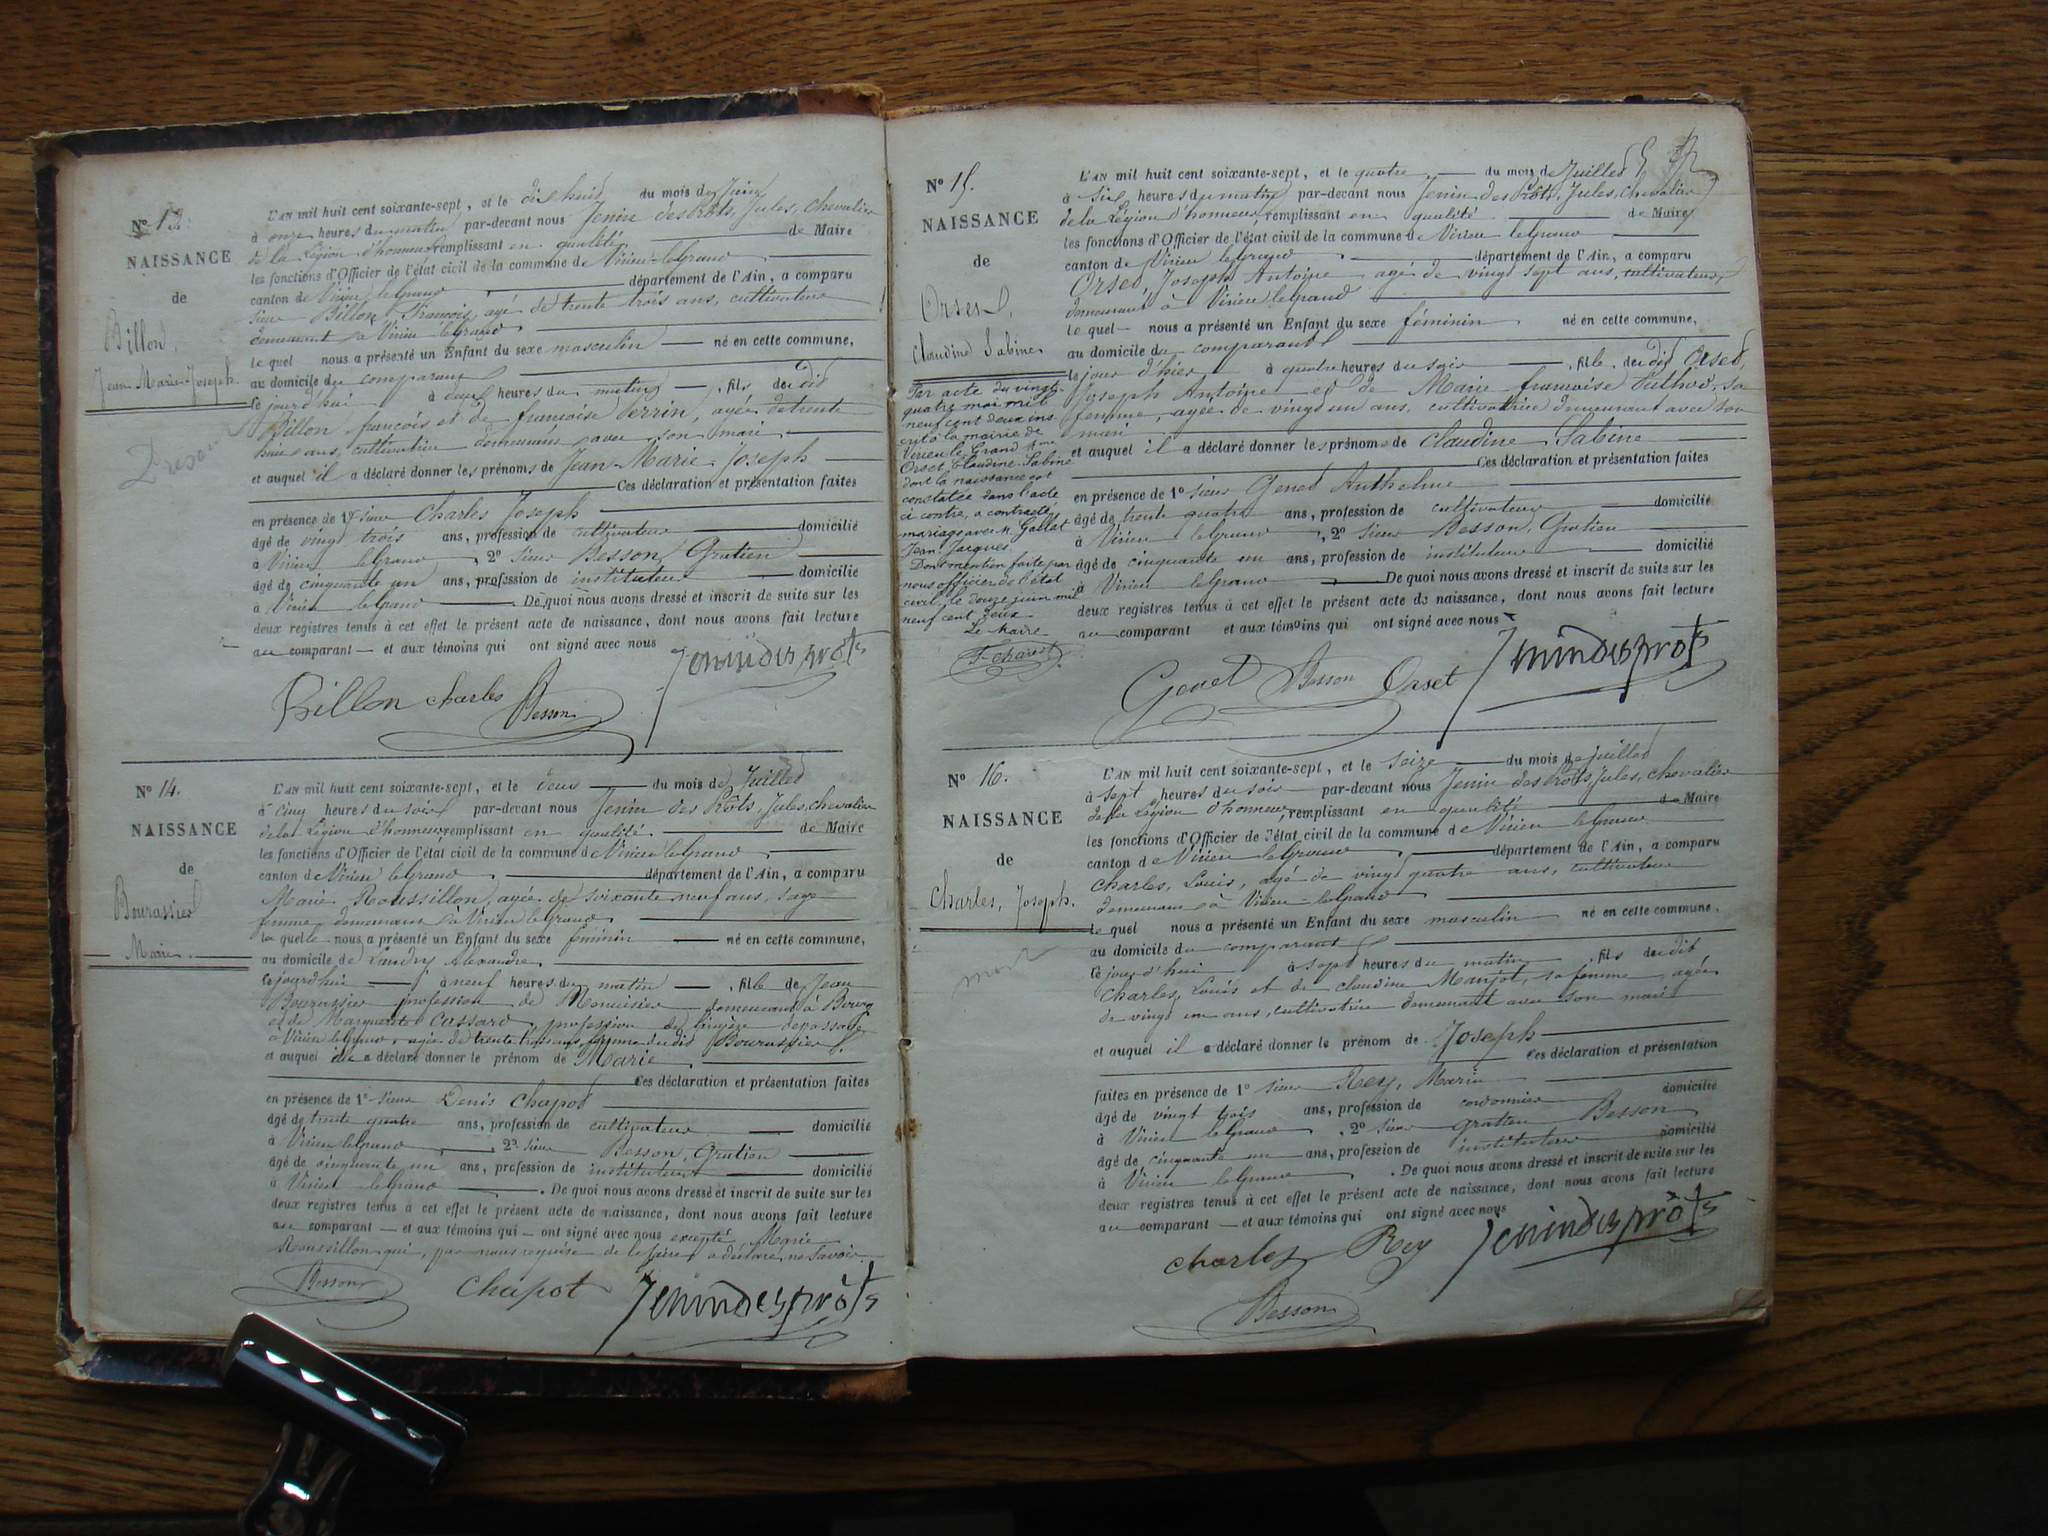 Nº 13.
NAISSANCE
de
Billod,
Jean-Marie-Joseph
L'AN mil huit cent soixante-sept, et le dix huit du mois de Juin
à onze heures du matin par-devant nous Jenin des Prôts, Jules, chevalier
de la Légion d'honneur remplissant en qualité de Maire
les fonctions d'Officier de l'état civil de la commune de Virieu-le-Grand
canton de Virieu leGrand département de l'Ain, a comparu
sieur Billon, François, agé de trente trois ans, cultivateur
demeurant à Virieu leGrand
le quel nous a présenté un Enfant du sexe masculin né en cette commune,
au domicile du comparant
ce jourd'hui à deux heures du matin, fils du dit
Billon françois et de françoise Perrin, agée de trente
ans, cultivatrice demeurant avec son mari
et auquel il a déclaré donner les prénoms de Jean-Marie-Joseph
Ces déclaration et présentation faites
en présence de 1º sieur Charles Joseph
âgé de vingt trois ans, profession de cultivateur domicilié
à Virieu leGrand, 2º sieur Besson, Gratien
âgé de cinquante un ans, profession de instituteur domicilié
à Virieu leGrand De quoi nous avons dressé et inscrit de suite sur les
deux registres tenus à cet effet le présent acte de naissance, dont nous avons fait lecture
au comparant et aux témoins qui ont signé avec nous
Billon Charles Besson Jenindesprôts
Nº 14.
NAISSANCE
de
Bourassier
Marie
L'AN mil huit cent soixante-sept, et le deux du mois de Juillet
à cinq heures du soir par-devant nous Jenin des Prôts, Jules, chevalier
de la Légion d'honneur remplissant en qualité de Maire
les fonctions d'Officier de l'état civil de la commune de Virieu leGrand
canton de Virieu leGrand département de l'Ain, a comparu
Marie Roussillon, agée de soixante neuf ans, sage
femme demeurant à Virieu leGrand
la quelle nous a présenté un Enfant du sexe féminin né en cette commune,
au domicile de Landry Alexandre
ce jourd'hui à neuf heures du matin, fille de Jean
Bourassier profession de Menuisier demeurant à Bourg
et de Marguerite Cassard, profession de de passage
à Virieu leGrand, agée de trente trois ans, femme du dit Bourassier
et auquel elle a déclaré donner le prénom de Marie
Ces déclaration et présentation faites
en présence de 1º sieur Denis Chapot
âgé de trente quatre ans, profession de cultivateur domicilié
à Virieu leGrand, 2º sieur Besson, Gratien
âgé de cinquante un ans, profession de instituteur domicilié
à Virieu leGrand. De quoi nous avons dressé et inscrit de suite sur les
deux registres tenus à cet effet le présent acte de naissance, dont nous avons fait lecture
au comparant et aux témoins qui ont signé avec nous excepté Marie
Roussillon qui, par nous requise de le faire a déclaré ne savoir
Besson Chapot Jenindesprôts
Nº 15.
NAISSANCE
de
Orset,
Claudine Sabine
Par acte du vingt
quatre mai mil
neuf cent deux ins
crit à la mairie de
Virieu le Grand Mme
Orset, Claudine-Sabine
dont la naissance est
constatée dans l'acte
ci contre, a contracté
mariage avec M. Gallet
Jean-Jacques.
Dont mention faite par
nous officier de l'état
civil, le douze juin mil
neuf cent deux
Le Maire
L'AN mil huit cent soixante-sept, et le quatre du mois de Juillet
à six heures du matin par-devant nous Jenin des Prôts, Jules, chevalier
de la Légion d'honneur remplissant en qualité de Maire
les fonctions d'Officier de l'état civil de la commune de Virieu leGrand
canton de Virieu leGrand département de l'Ain, a comparu
Orset, Joseph Antoine agé de vingt sept ans, cultivateur
demeurant à Virieu leGrand
le quel nous a présenté un Enfant du sexe féminin né en cette commune,
au domicile du comparant
le jour d'hier à quatre heures du soir, fille du dit Orset,
Joseph Antoine et de Marie françoise Juthod, sa
femme, agée de vingt un ans, cultivatrice demeurant avec son
mari
et auquel il a déclaré donner les prénoms de Claudine Sabine
Ces déclaration et présentation faites
en présence de 1º sieur Genet Anthelme
âgé de trente quatre ans, profession de cultivateur domicilié
à Virieu leGrand, 2º sieur Besson, Gratien
âgé de cinquante un ans, profession de instituteur domicilié
à Virieu leGrand De quoi nous avons dressé et inscrit de suite sur les
deux registres tenus à cet effet le présent acte de naissance, dont nous avons fait lecture
au comparant et aux témoins qui ont signé avec nous
Genet Besson Orset Jenindesprôts
Nº 16.
NAISSANCE
de
Charles, Joseph.
mort
L'AN mil huit cent soixante-sept, et le seize du mois de juillet
à sept heures du soir par-devant nous Jenin des Prôts, Jules, chevalier
de la Légion d'honneur, remplissant en qualité de Maire
les fonctions d'Officier de l'état civil de la commune de Virieu leGrand
canton de Virieu leGrand département de l'Ain, a comparu
Charles, Louis, agé de vingt quatre ans, cultivateur
demeurant à Virieu-leGrand
le quel nous a présenté un Enfant du sexe masculin né en cette commune.
au domicile du comparant
ce jourd'hui à sept heures du matin, fils du dit
Charles, Louis et de Claudine Manjot, sa femme, agée
de vingt un ans, cultivatrice demeurant avec son mari
et auquel il a déclaré donner le prénom de Joseph
Ces déclaration et présentation
faites en présence de 1º sieur Rey, Marin
âgé de vingt trois ans, profession de cordonnier domicilié
à Virieu leGrand, 2º sieur Gratien Besson
âgé de cinquante un ans, profession de instituteur domicilié
à Virieu leGrand. De quoi nous avons dressé et inscrit de suite sur les
deux registres tenus à cet effet le présent acte de naissance, dont nous avons fait lecture
au comparant et aux témoins qui ont signé avec nous
Charles Rey Jenindesprôts
Besson